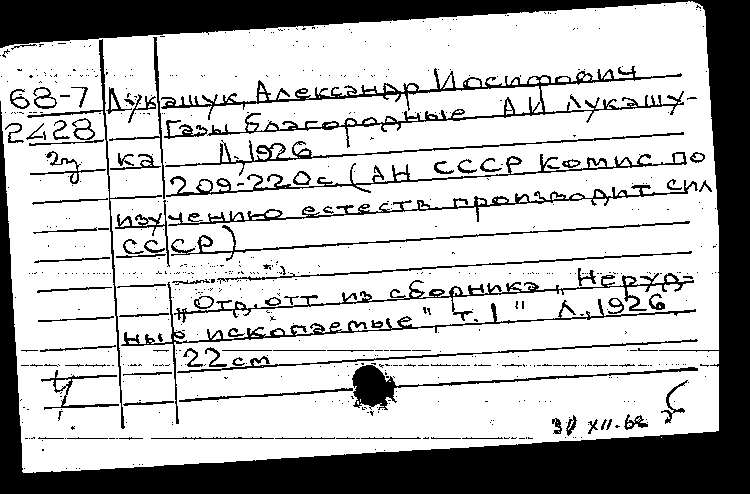 68-7 Лукашук, Александр Иосифович
2428 Газы благородные А.И Лукашу-
2м ка Л., 1926
209-220с. (АН СССР Комис. по
изучению естеств. производит. сил
СССР)
„Отд. отт. из сборника „Неруд-
ные ископаемые", т. 1" Л., 1926.
22 см
Ч
30 XII-68